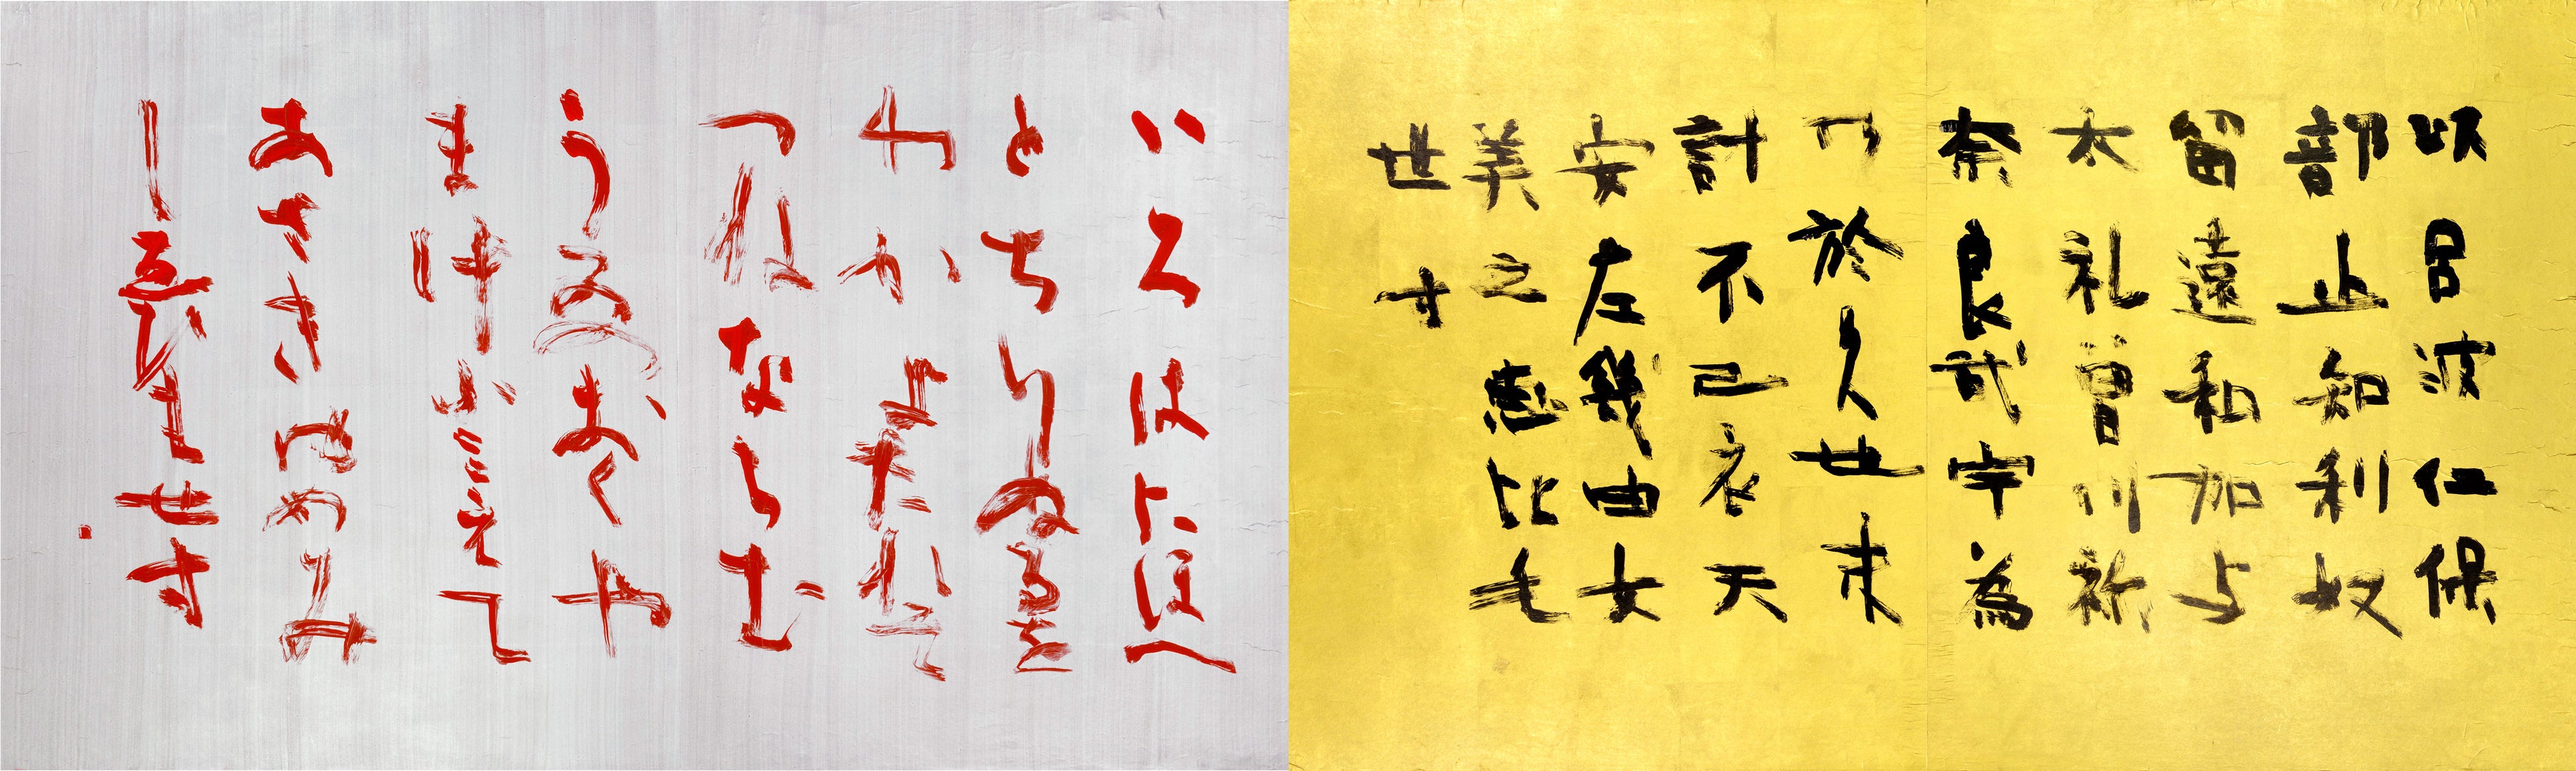 以呂波仁保
部止知利奴
留遠和加与
太礼曽川祢
奈良武宇為
乃於久也末
計不己衣天
安左幾由女
美之恵比毛
世寸
いろはにほへ
とちりぬるを
わかよたれそ
つねならむ
うゐのおくや
まけふこえて
あさきゆめみ
しゑひもせす